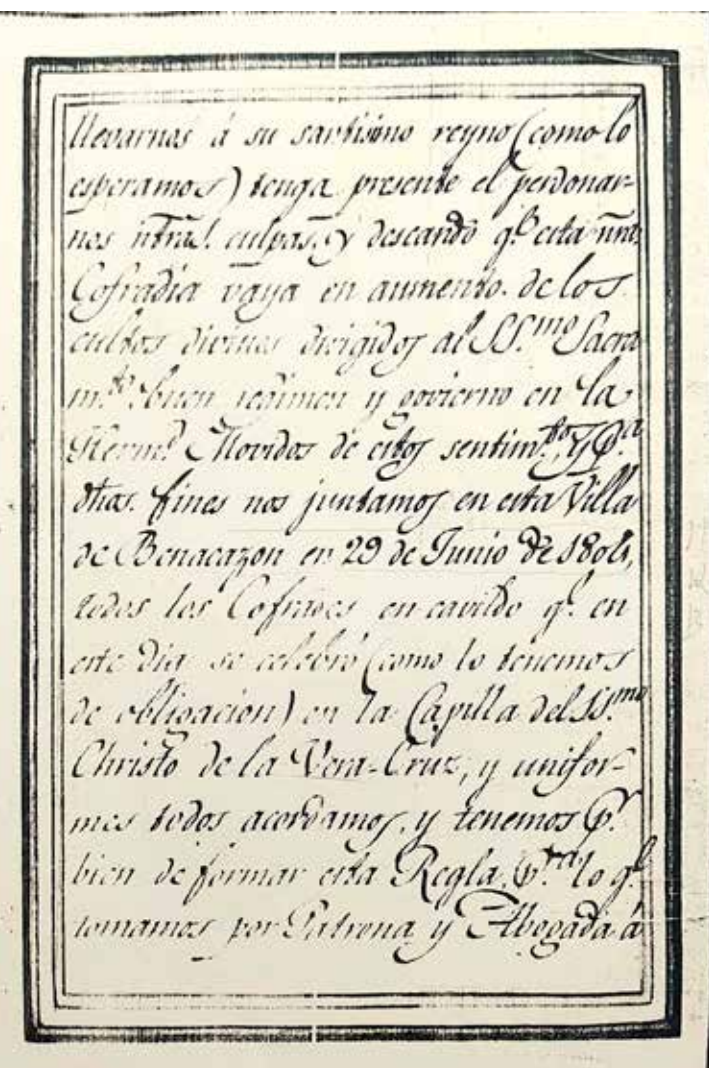 llevarnos á su santisimo reyno (como lo
esperamos) tenga presente el perdonar-
nos ntras. culpas. y deseando q.e esta nra.
Cofradia vaya en aumento. de los
cultos divinos dirigidos al SS.mo Sacra
m.to buen regimen y govierno en la
Herm.d Movidos de estos sentim.tos, y p.a
otros. fines nos juntamos en esta Villa
de Benacazon en 29 de Junio de 1804,
todos los Cofrades en cavildo q.e en
este dia se celebró (como lo tenemos
de obligacion) en la Capilla del SS.mo
Christo de la Vera-Cruz, y unifor-
mes todos acordamos, y tenemos p.r
bien de formar esta Regla, p.ra lo q.e
tomamos por Patrona y Abogada á